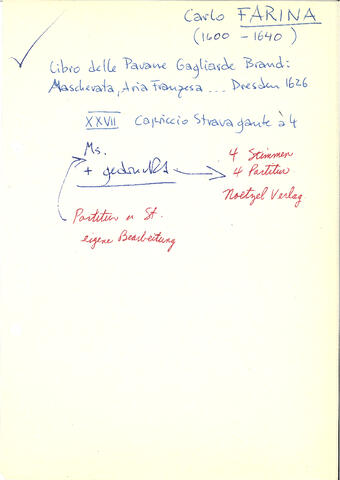 Carlo FARINA
(1600 - 1640)
Libro delle Pavane Gagliarde Brand:
Mascherata, Aria Franzesa ... Dresden 1626
XXVII Capriccio Stravagante à 4
Ms.
+ gedruckt
4 Stimmen
4 Partitur
Noetzel Verlag
Partitur u St.
eigene Bearbeitung